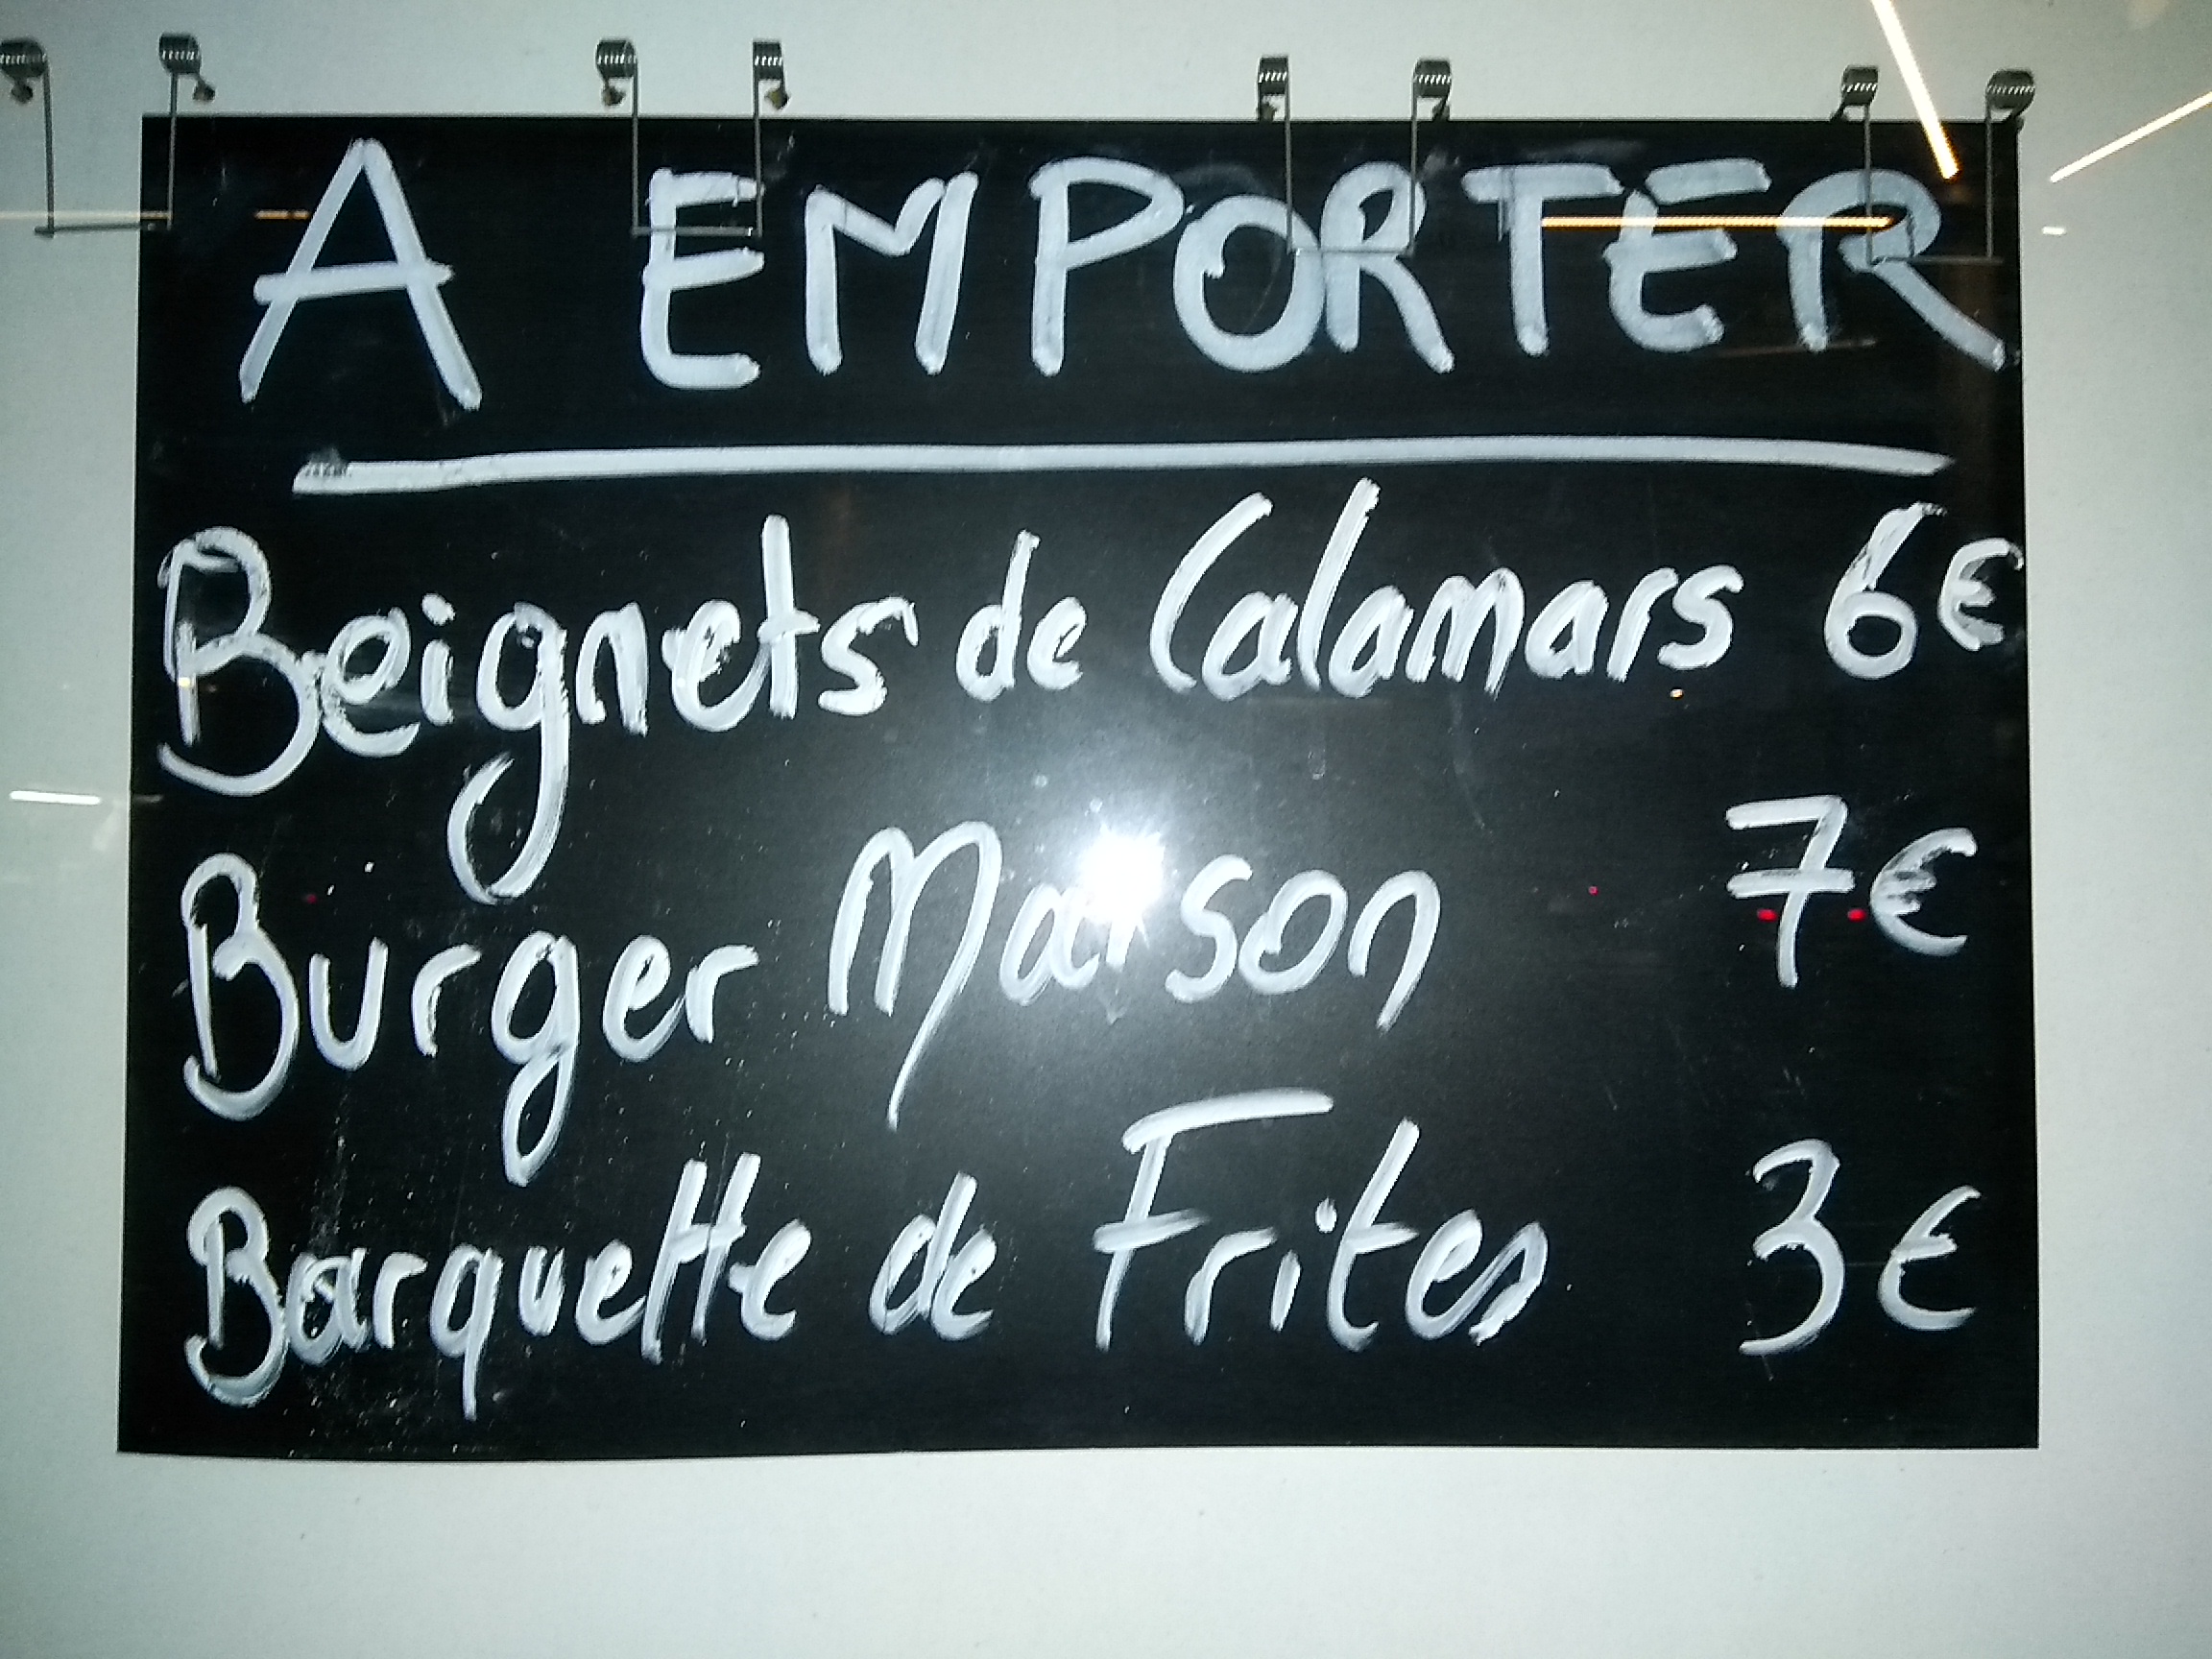 A EMPORTER
Beignets de Calamars 6€
Burger Maison 7€
Barquette de Frites 3€